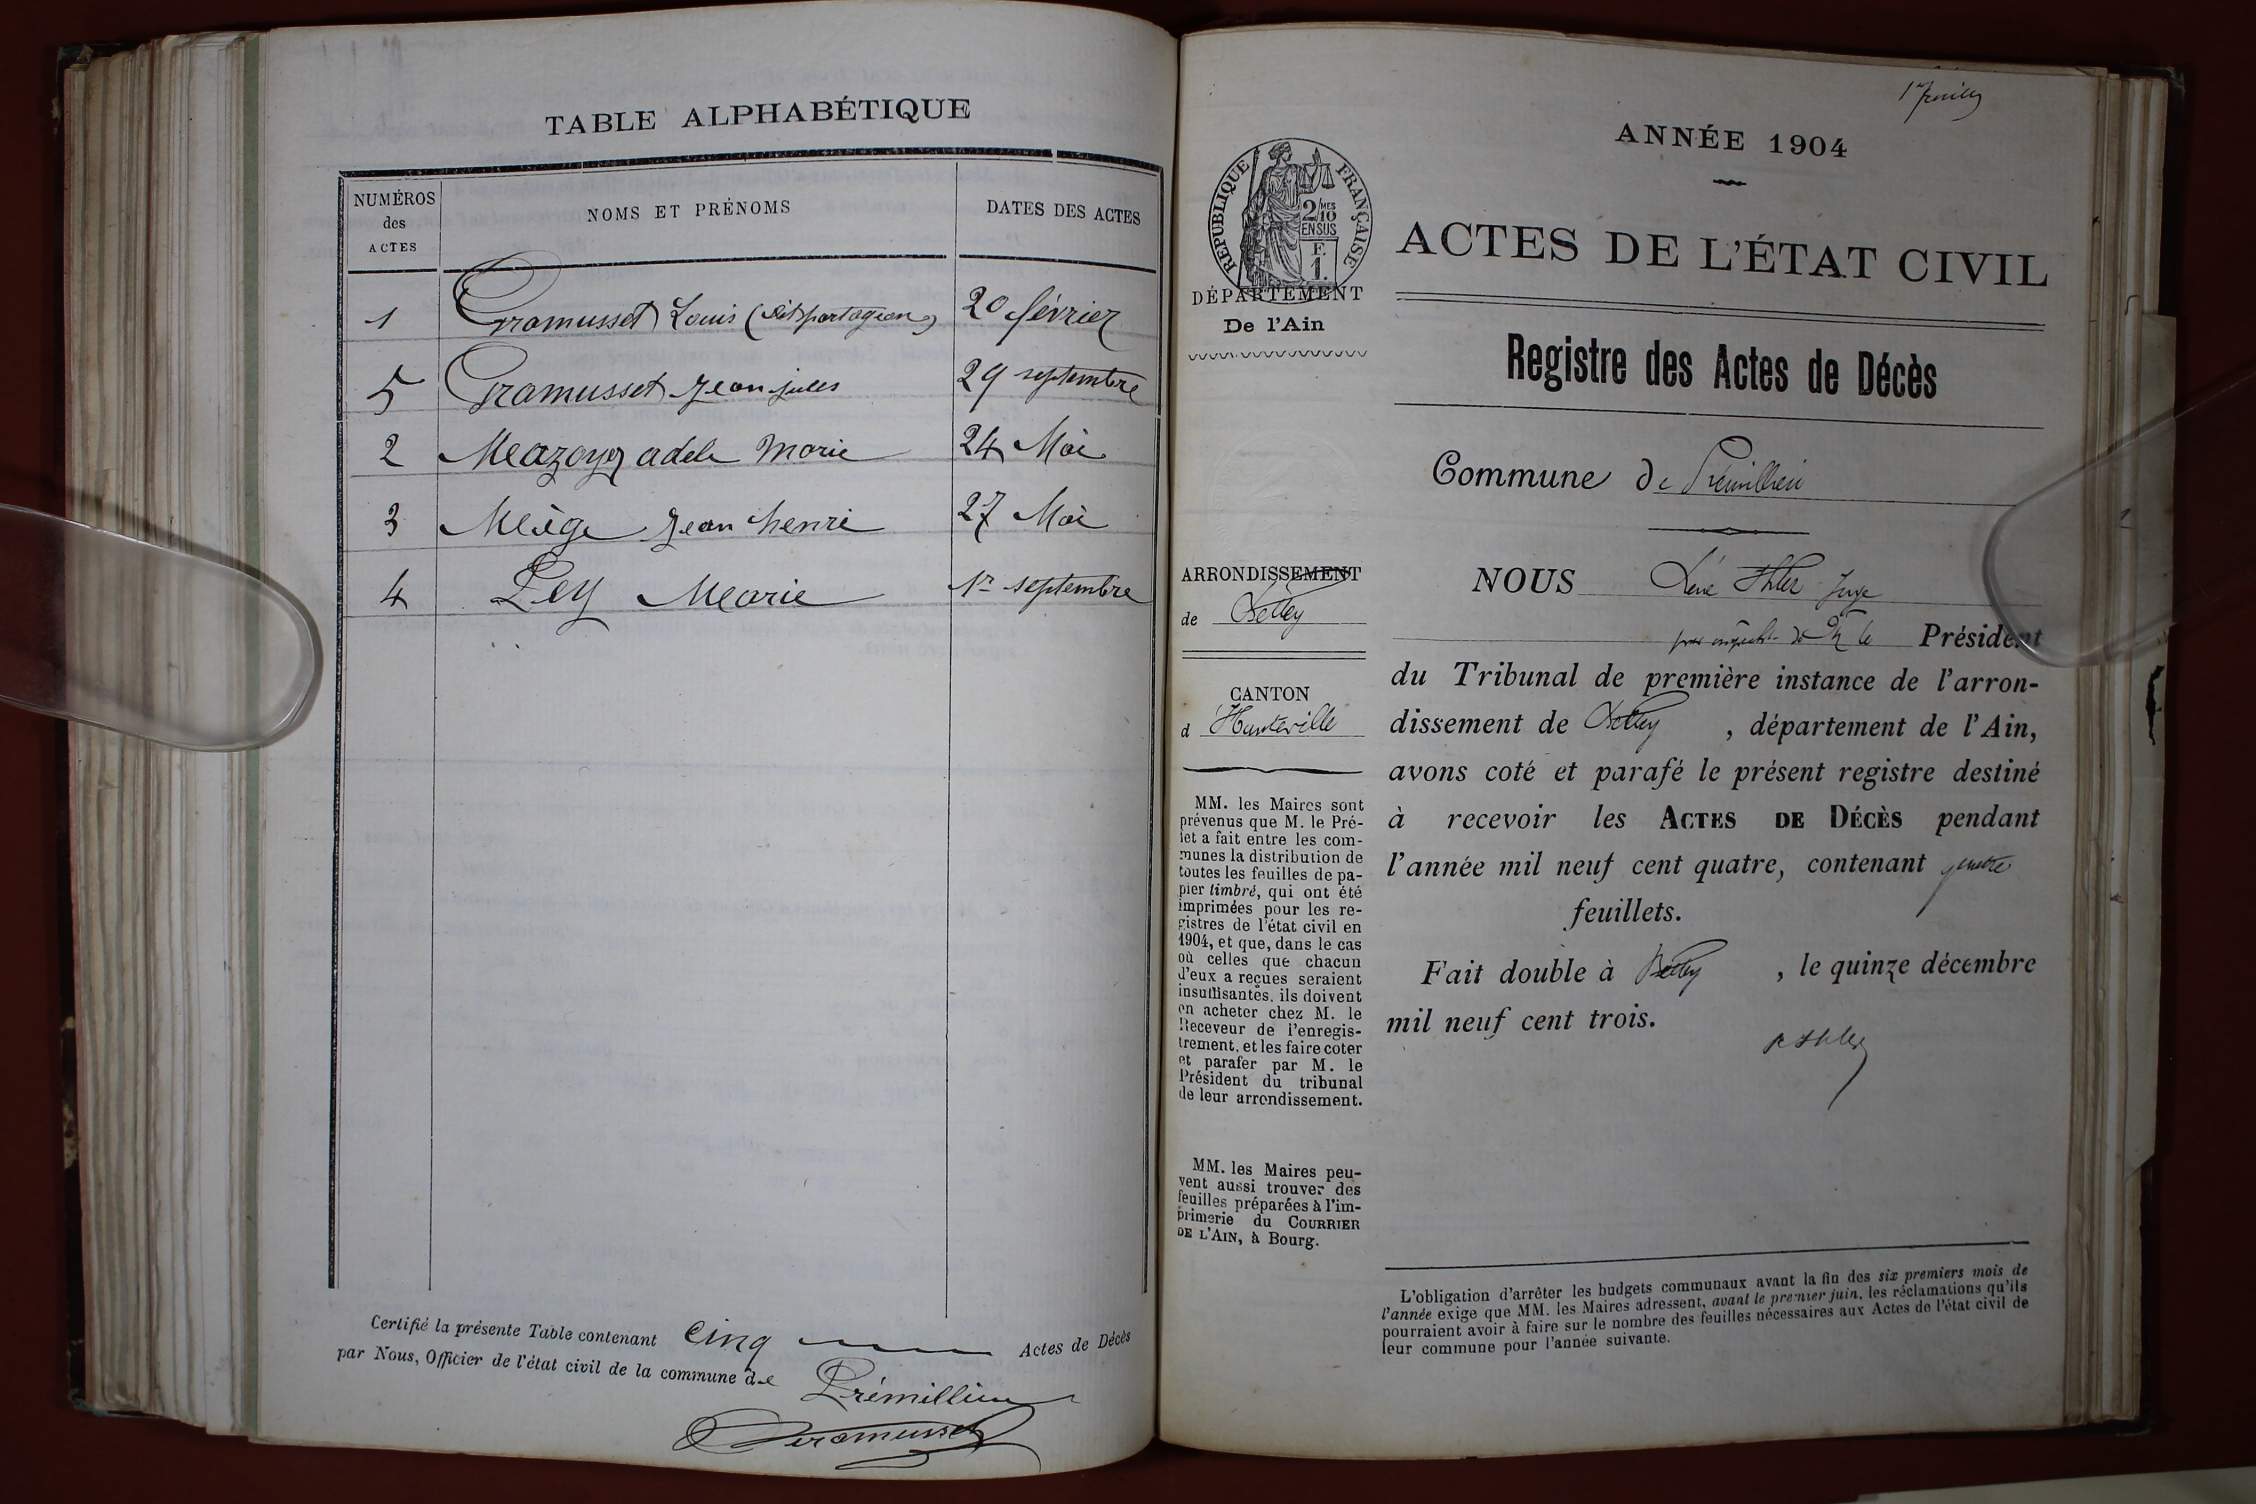 TABLE ALPHABÉTIQUE
NUMÉROS des ACTES
NOMS ET PRÉNOMS
DATES DES ACTES
1 Gramusset Louis (dit 20 février
5 Gramusset Jean jules 29 septembre
2 Mazoyer adele Marie 24 Mai
3 Miège Jean henri 27 Mai
4 Ley Marie 1er septembre
Certifié la présente Table contenant cinq Actes de Décès
par Nous, Officier de l'état civil de la commune de Prémillieu
Gramusset
ANNÉE 1904
RÉPUBLIQUE FRANÇAISE
2/MES
10
EN SUS
F.
1.
DÉPARTEMENT
De l'Ain
ACTES DE L'ÉTAT CIVIL
Registre des Actes de Décès
Commune de Prémillieu
ARRONDISSEMENT
de Belley
CANTON
d Hauteville
MM. les Maires sont
prévenus que M. le Pré-
fet a fait entre les com-
munes la distribution de
toutes les feuilles de pa-
pier timbré, qui ont été
imprimées pour les re-
gistres de l'état civil en
1904, et que, dans le cas
où celles que chacun
d'eux a reçues seraient
insuffisantes, ils doivent
en acheter chez M. le
Receveur de l'enregis-
trement, et les faire coter
et parafer par M. le
Président du tribunal
de leur arrondissement.
MM. les Maires peu-
vent aussi trouver des
feuilles préparées à l'im-
primerie du COURRIER
DE L'AIN, à Bourg.
NOUS René Ihler Juge
Président
du Tribunal de première instance de l'arron-
dissement de Belley , département de l'Ain,
avons coté et parafé le présent registre destiné
à recevoir les ACTES DE DÉCÈS pendant
l'année mil neuf cent quatre, contenant quatre
feuillets.
Fait double à Belley , le quinze décembre
mil neuf cent trois.
R Ihler
L'obligation d'arrêter les budgets communaux avant la fin des six premiers mois de
l'année exige que MM. les Maires adressent, avant le premier juin, les réclamations qu'ils
pourraient avoir à faire sur le nombre des feuilles nécessaires aux Actes de l'état civil de
leur commune pour l'année suivante.